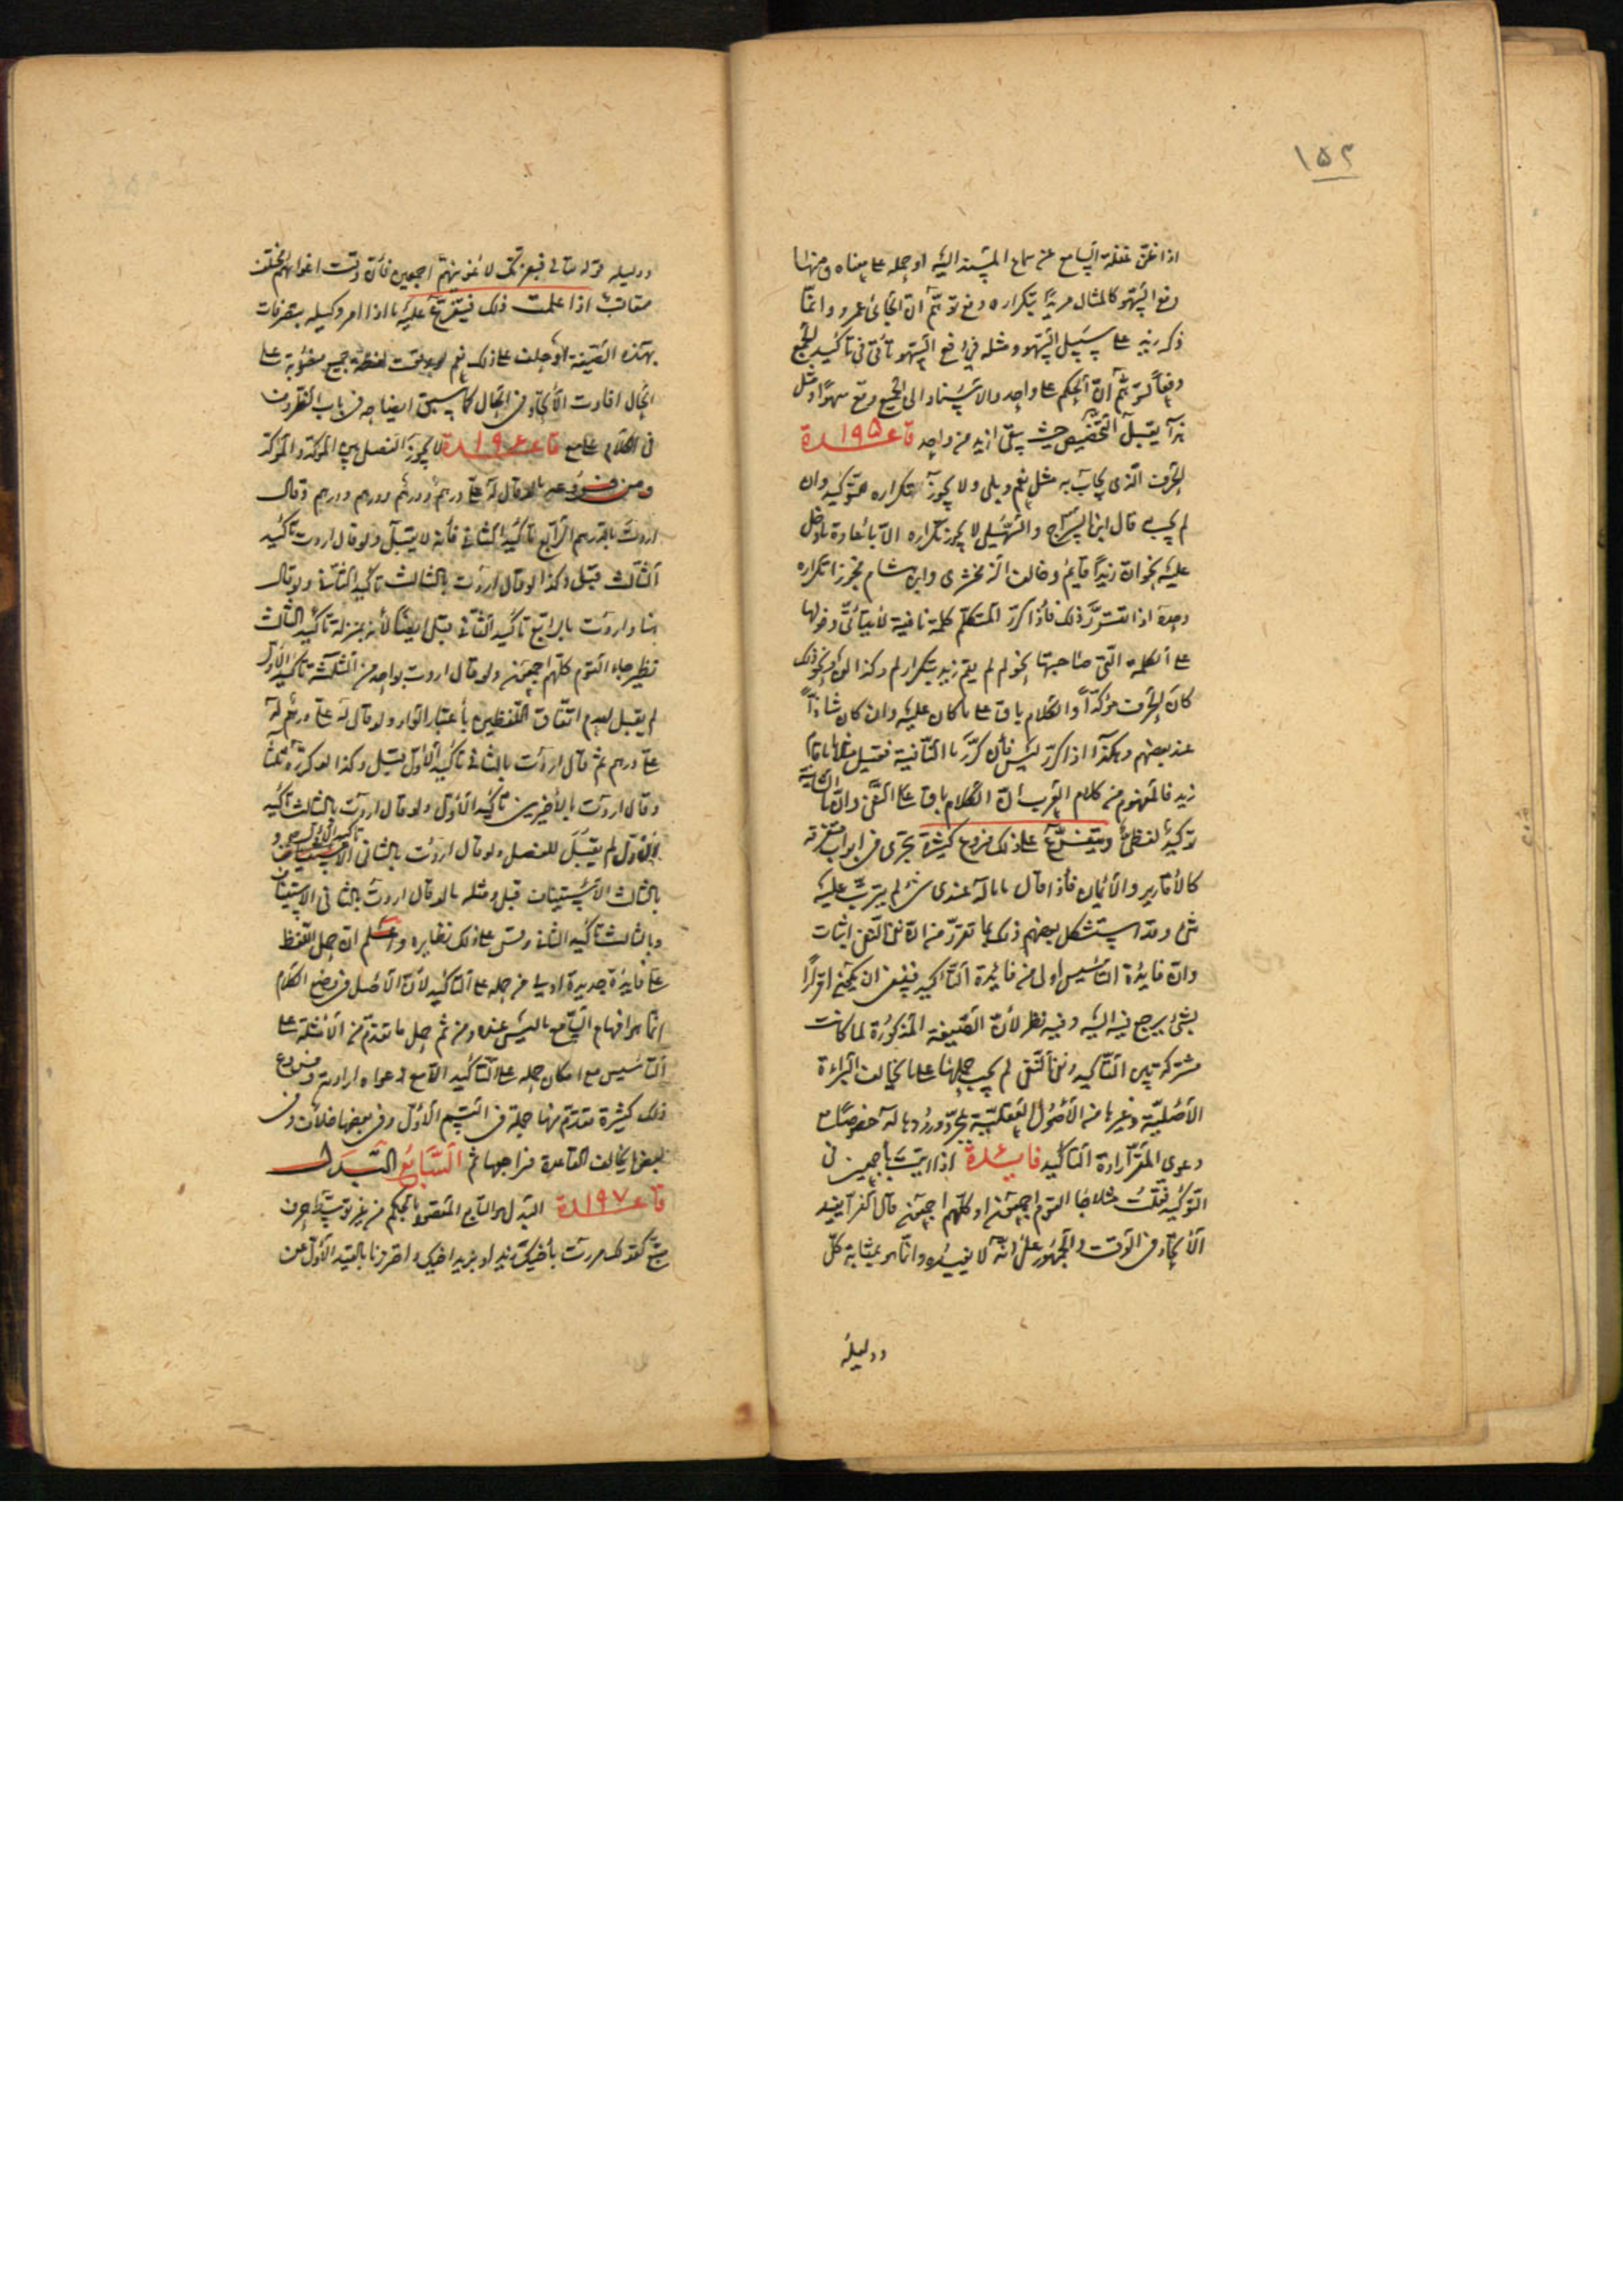 ١٥٢
اذا ظن غفلة السامع عن سماع المسند اليه او حمله على معناه ومنها
دفع السهو كالمثال مريدا بتكراره دفع توهم ان الجائى عمرو وانما
ذكر زيد على سبيل السهو ومثله فى دفع السهو تأتى فى تأكيد الجمع
دفعا لتوهم ان الحكم على واحد والاسناد الى الجميع وقع سهوا ومثل
هذا يقبل التخصيص حيث يبقى ازيد من واحد قاعدة ١٩٥
الحرف الذى يجاب به مثل نعم وبلى ولا يجوز تكراره للتوكيد وان
لم يجب به قال ابن السراج والسهيلى لا يجوز تكراره الا باعادة ما دخل
عليه نحو ان زيدا ان زيدا قايم وخالف الزمخشرى وابن هشام فجوزا تكراره
وحده اذا تقرر ذلك فاذا كرر المتكلم كلمة نافية لا يتأتى دخولها
على الكلمة التى صاحبتها نحو لم لم يقم زيد بتكرار لم وكذا لن ونحو ذلك
كان الحرف مؤكدا والكلام باق على ما كان عليه وان كان شاذا
عند بعضهم وهكذا اذا كرر ليس فان كرر ما النافية فقيل مثلا ما ما قام
زيد فالمفهوم من كلام العرب ان الكلام باق على النفى وان ما الثانية
توكيد لفظى ويتفرع على ذلك فروع كثيرة تجرى فى ابواب متفرقة
كالأقارير والأيمان فاذا قال ما ما له عندى شئ لم يترتب عليه
شئ وقد استشكل بعضهم ذلك بما تقرر من ان نفى النفى اثبات
وان فايدة التأسيس اولى من فايدة التأكيد فينبغى ان يكون اقرارا
بشئ يرجع فيه اليه وفيه نظر لأن الصيغة المذكورة لما كانت
مشتركة بين التأكيد ونفى النفى لم يجب حملها على ما يخالف البراءة
الأصلية وغيرها من الأصول العقلية بمجرد ورودها له خصوصا مع
دعوى المقر ارادة التأكيد فايدة اذا اتيت بأجمعين فى
التوكيد فقلت مثلا جاء القوم اجمعون او كلهم اجمعون قال الفراء يفيد
الأتحاد فى الوقت والجمهور على انه لا يفيده وانما هو بمثابة كل
ودليله
ودليله قوله تعالى فبعزتك لاغوينهم اجمعين فان وقت اغوائهم مختلف
متعاقب اذا علمت ذلك فيتفرع عليه ما اذا امر وكيله بتصرفات
بهذه الصيغة او حلف على ذلك نعم لو وقعت لفظة جميع منصوبة على
الحال افادت الأتحاد فى الحال كما سبق ايضاحه فى باب الظروف
فى الكلام على مع قاعدة ١٩٦ لا يجوز الفصل بين المؤكد والمؤكد
ومن فروعه ما لو قال له على درهم ودرهم ودرهم ودرهم وقال
اردت بالدرهم الرابع تأكيد الثانى فأنه لا يقبل ولو قال اردت تأكيد
الثالث قبل وكذا لو قال اردت بالثالث تأكيد الثانى ولو قال
هنا واردت بالرابع تأكيد الثانى قبل ايضا لأنه بمنزلة تأكيد الثالث
نظير جاء القوم كلهم اجمعون ولو قال اردت بواحد من الثلثة تأكيد الأول
لم يقبل لعدم اتفاق اللفظين بأعتبار الواو ولو قال له على درهم له
على درهم ثم قال اردت بالثانى تأكيد الأول قبل وكذا لو كرره ثلثا
وقال اردت بالأخيرين تأكيد الأول ولو قال اردت بالثالث تأكيد
الأول لم يقبل للفصل ولو قال اردت بالثانى تأكيد الأول و
بالثالث الأستيناف قبل ومثله ما لو قال اردت بالثانى الاستيناف
وبالثالث تأكيد الثانى وقس على ذلك نظايره واعلم ان حمل اللفظ
على فايدة جديدة اولى من حمله على التأكيد لأن الأصل فى وضع الكلام
انما هو افهام السامع ما ليس عنده ومن ثم حمل ما تقدم من الأمثلة على
التأسيس مع امكان حمله على التأكيد الا مع دعواه ارادته وفروع
ذلك كثيرة تقدم منها جملة فى القسم الأول وفى بعضها خلاف وفى
بعضها يخالف القاعدة فراجعها ثم السابع البدل
قاعدة ١٩٧ البدل هو التابع المقصود بالحكم من غير توسط حرف
متبع كقولك مررت بأخيك زيد او بزيد اخيك واحترزنا بالقيد الأول عن